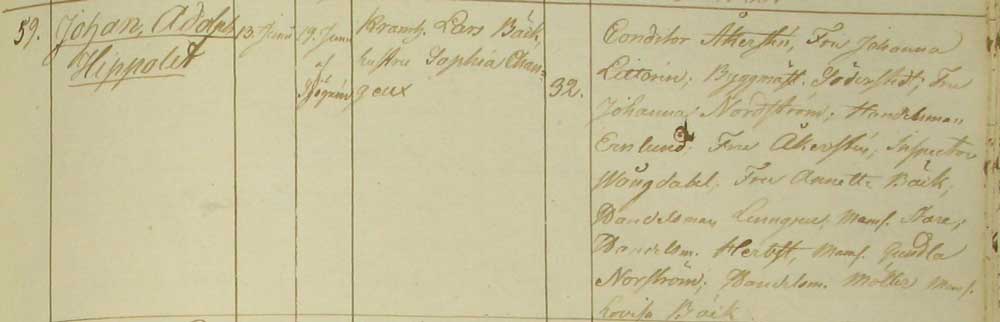 59. Johan, Adolph
Hippolit
13 Junii
19 Junii
af
Kramh. Lars Bäck,
hustru Sophia Chan-
geux
32.
Conditor Åkersten, Fru Johanna
Littorin; Byggmäst. Söderstedt; Fru
Johanna Nordström; Handelsman
Ernlund. Fru Åkersten; Inspector
Wångdahl. Fru Annette Bäck;
Handelsman Mams.
Handelsm. Herbst, Mams. Gundla
Norström; Handelsm. Möller Mams.
Lovisa Bäck